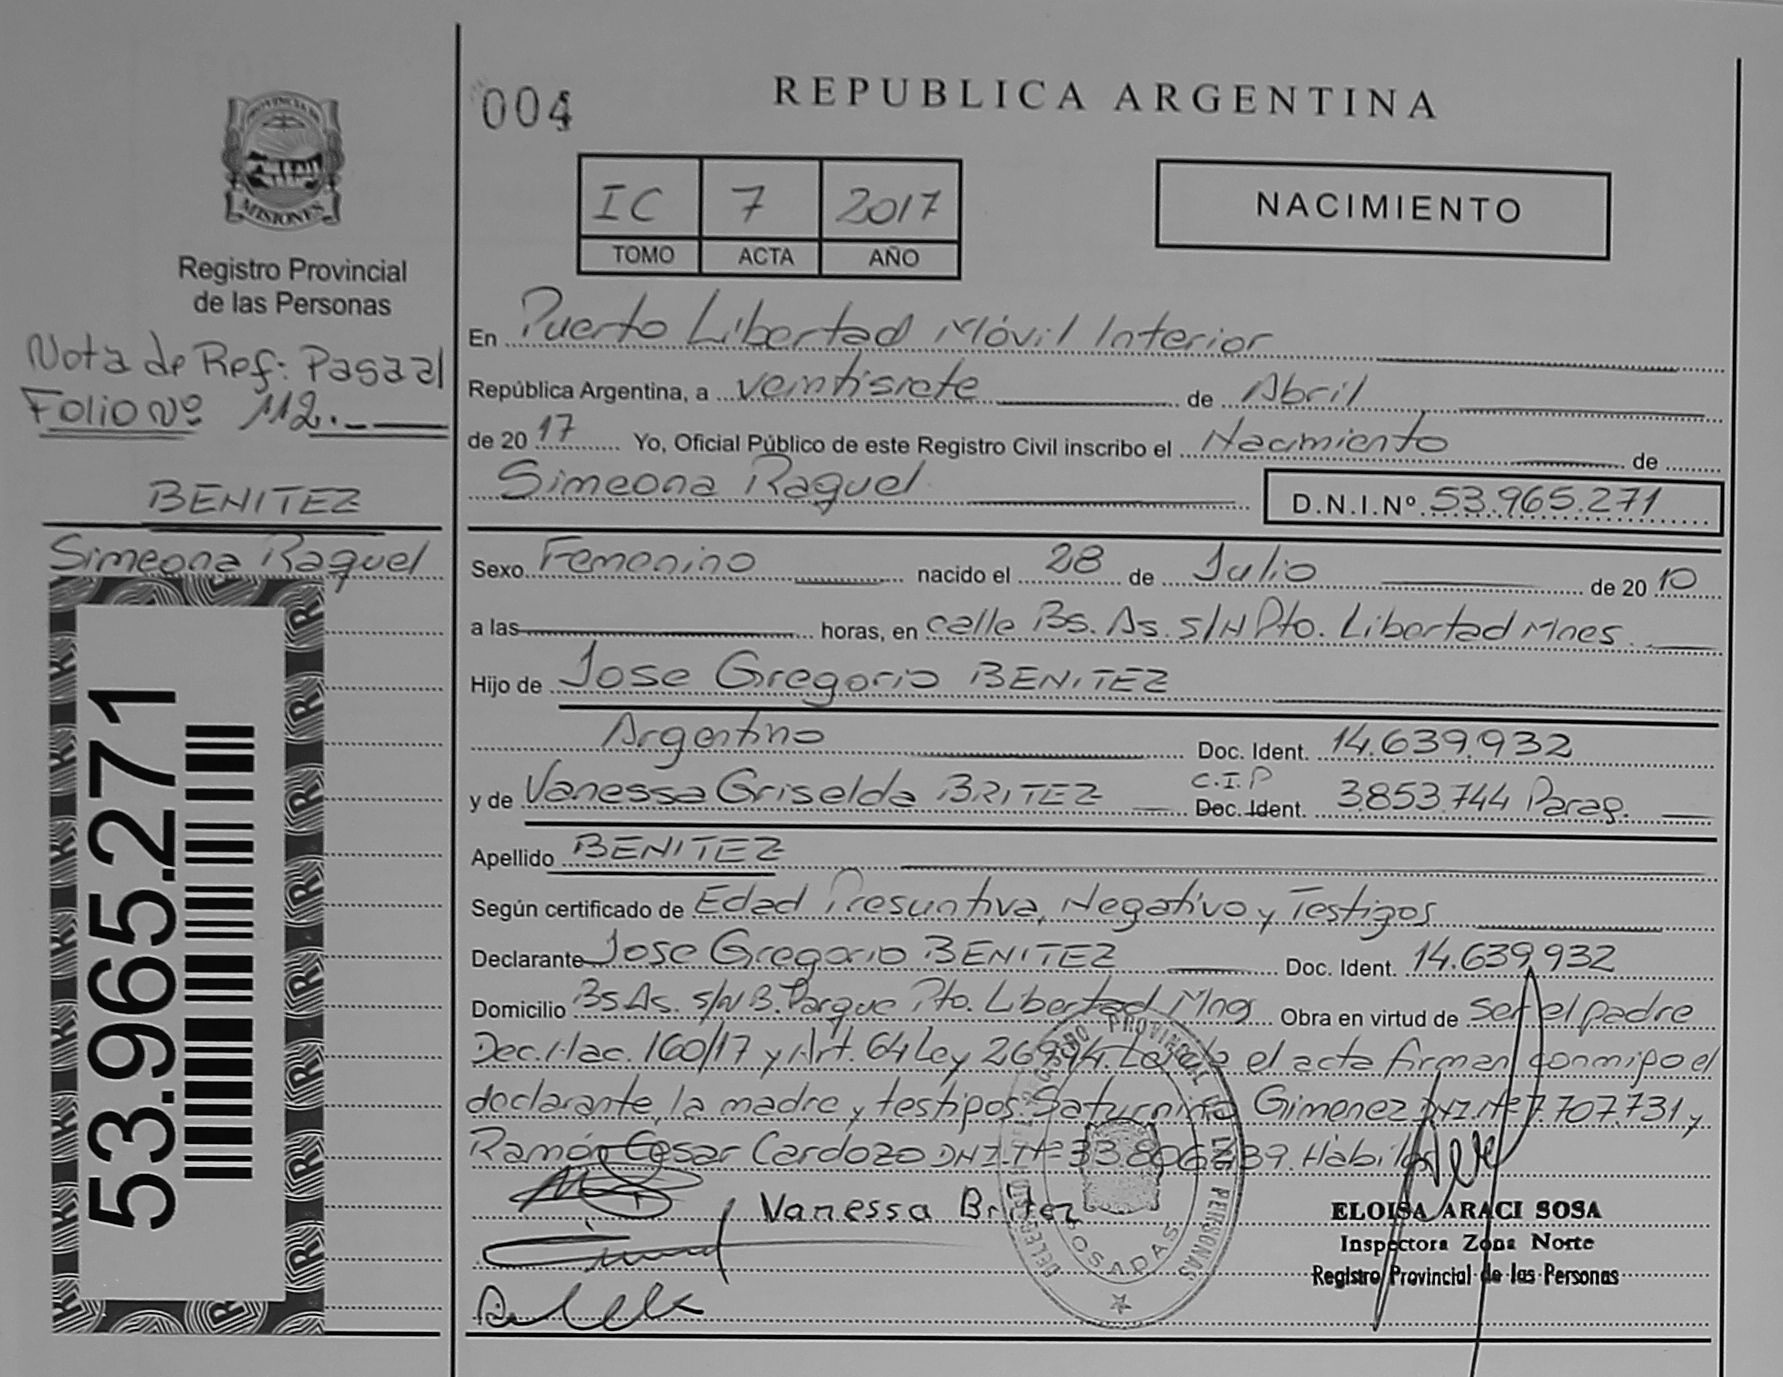 004
REPUBLICA ARGENTINA
PROVINCIA DE
MISIONES
Registro Provincial
de las Personas
IC 7 2017
TOMO ACTA AÑO
NACIMIENTO
Nota de Ref: Pasa al
Folio Nº 112.-
BENITEZ
Simeona Raquel
53.965.271
En Puerto Libertad Móvil Interior
República Argentina, a veintisiete de Abril
de 2017 Yo, Oficial Público de este Registro Civil inscribo el Nacimiento de
Simeona Raquel D.N.I.Nº 53.965.271
Sexo Femenino nacido el 28 de Julio de 2010
a las horas, en calle Bs. As. s/N Pto. Libertad Mnes.
Hijo de Jose Gregorio BENITEZ
Argentino Doc. Ident. 14.639.932
y de Vanessa Griselda BRITEZ C.I.P Doc. Ident. 3853.744 Parag.
Apellido BENITEZ
Según certificado de Edad Presuntiva, Negativo y Testigos
Declarante Jose Gregorio BENITEZ Doc. Ident. 14.639.932
Domicilio Bs As. s/N B. Parque Pto. Libertad Mnes Obra en virtud de ser el padre
Dec. Nac. 160/17 y Art. 64 Ley 26994. Leida el acta firman conmigo el
declarante, la madre y testigos: Saturnino Gimenez DNI. Nº 7.707.731 y
Ramón Cesar Cardozo DNI. Nº 33.806.739. Habiles
Vanessa Britez
REGISTRO PROVINCIAL DE LAS PERSONAS
POSADAS
ELOISA ARACI SOSA
Inspectora Zona Norte
Registro Provincial de las Personas